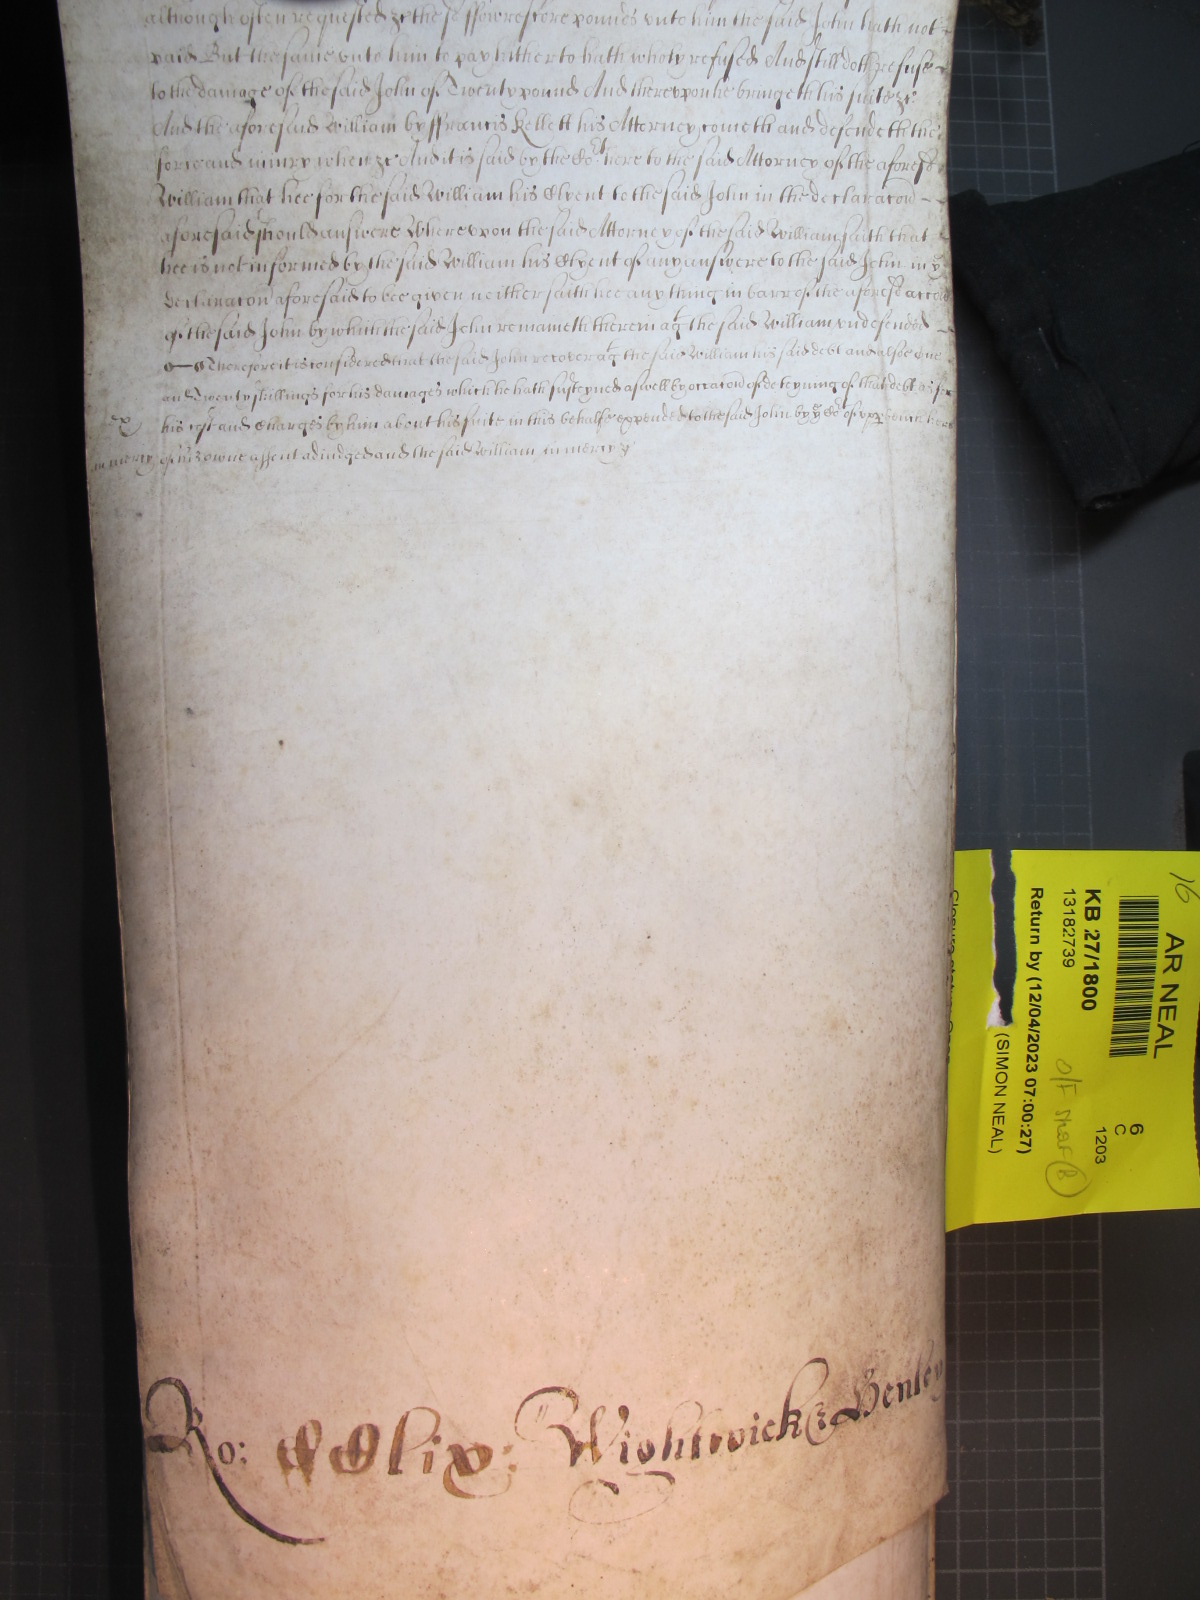 although often requested &c the se ffowrescore pounds unto him the said John hath not
paid But the same unto him to pay hitherto hath wholy refused And still doth refuse
to the damage of the said John of Twenty pound And thereupon he bringeth his suite &c
And the aforesaid William by ffrancis Kellett his Attorney cometh and defendeth the
force and iniury when &c And it is said by the Cort here to the said Attorney of the aforesd
William that hee for the said William his Clyent to the said John in the declaracon
aforesaid should answere Whereupon the said Attorney of the said William saith that
hee is not informed by the said William his Clyent of any answere to the said John in ye
declaracon aforesaid to bee given neither saith hee any thing in barr of the aforesd accon
of the said John by which the said John remaineth therein agt the said William undefended
Therefore it is considered that the said John recover agt the said William his said debt and alsoe one
and Twenty shillings for his damages which he hath susteyned aswell by occacon of deteyning of that debt as for
his cost and Charges by him about his suite in this behalfe expended to the said John by ye Cort of upp bench here
in mercy of his owne assent adiudged and the said William in mercy
Ro: CCClix: Wightwick & Henley
16
AR NEAL
6
C
1203
KB 27/1800
13182739
Return by (12/04/2023 07:00:27)
(SIMON NEAL)